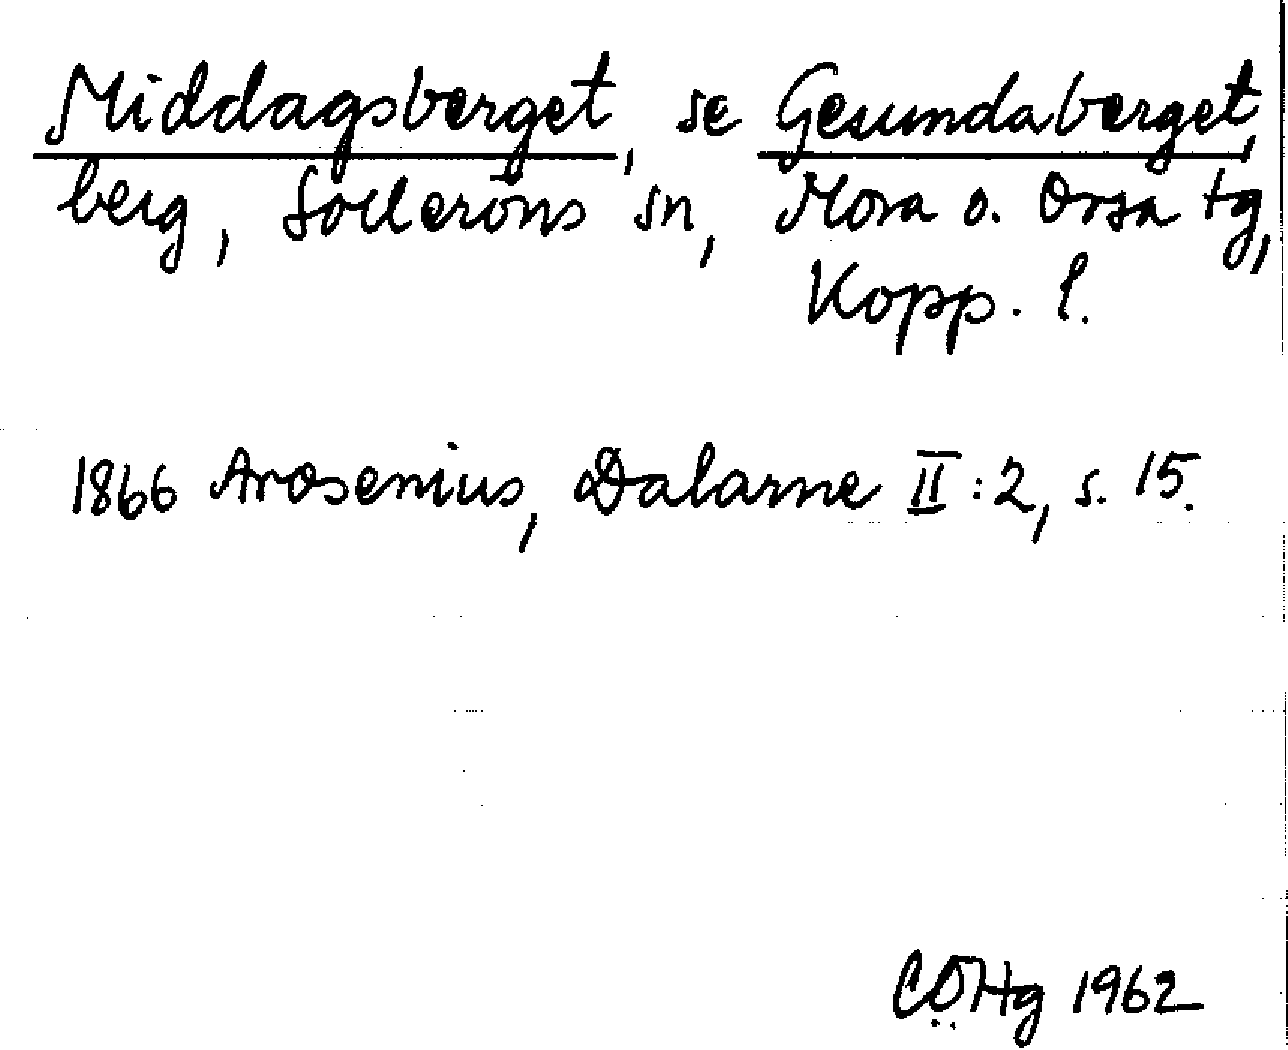 Middagsberget, se Gesundaberget,
berg, Solleröns sn, Mora o. Orsa tg,
Kopp. l.
1866 Arosenius, Dalarne II:2, s. 15.
CÖHg 1962